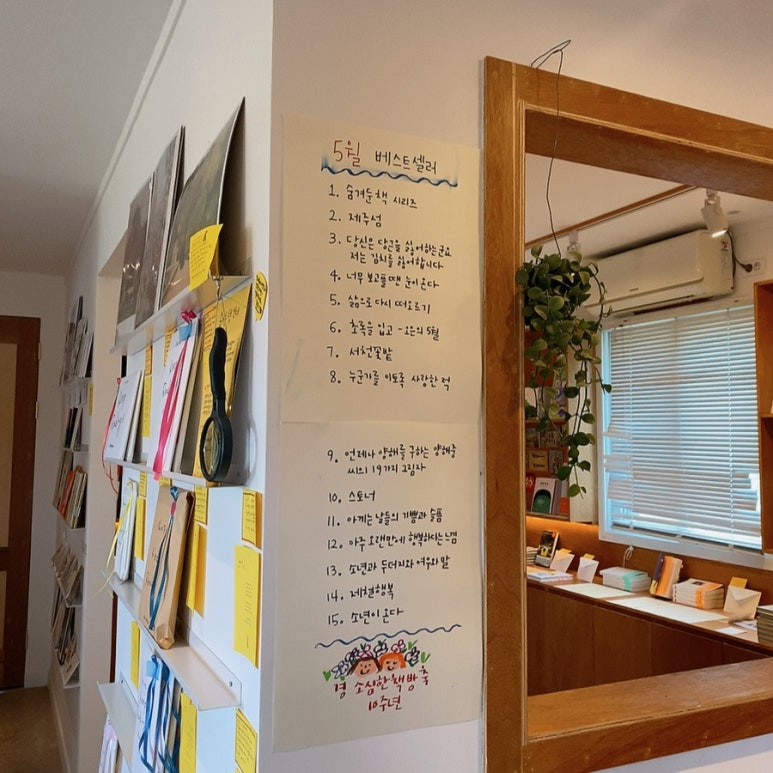 5월 베스트셀러
1. 숨겨둔 책 시리즈
2. 제주섬
3. 당신은 당근을 싫어하는군요
저는 김치를 싫어합니다
4. 너무 보고플 땐 눈이 온다
5. 삶으로 다시 떠오르기
6. 초록을 입고 - 오은의 5월
7. 서천꽃밭
8. 누군가를 이토록 사랑한 적
9. 언제나 양해를 구하는 양해중
씨의 19가지 그림자
10. 스토너
11. 아끼는 날들의 기쁨과 슬픔
12. 아주 오랜만에 행복하다는 느낌
13. 소년과 두더지와 여우와 말
14. 제철행복
15. 소년이 온다
경 소심한책방 축
10주년